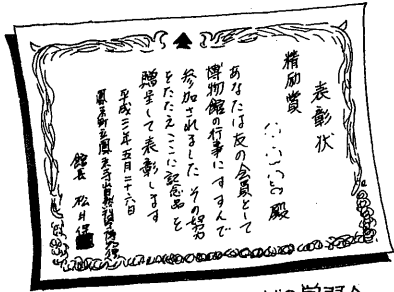 表彰状
精励賞
殿
あなたは友の会員として
博物館の行事にすすんで
参加されました その努力
をたたえここに記念品を
贈呈して表彰します
平成三年五月二十六日
鳳来町立鳳来寺山自然科学博物館
館長 松井保
の学習会